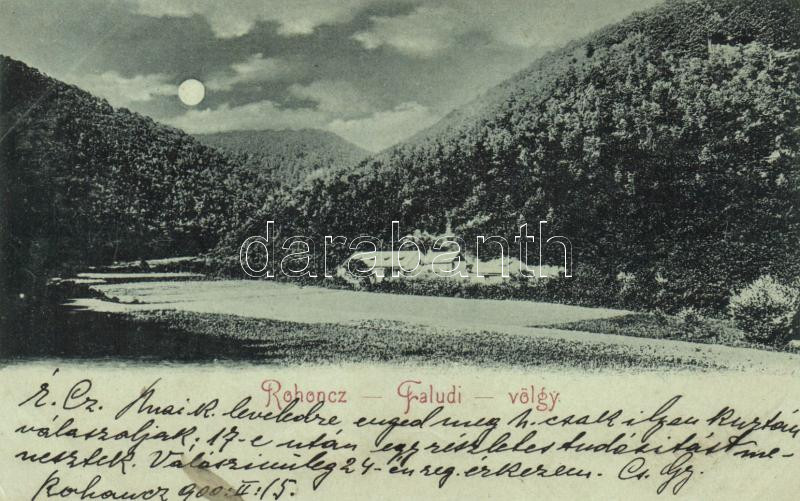 darabanth
Rohoncz — Faludi — völgy.
É. Cz. leveledre enged meg h. csak ilyen kurtán
válaszoljak. 17-e után egy részletes tudósítást me-
nesztek. Valószinüleg 24-én reg. érkezem. Cs. Gy.
Rohoncz 900. II. 15.